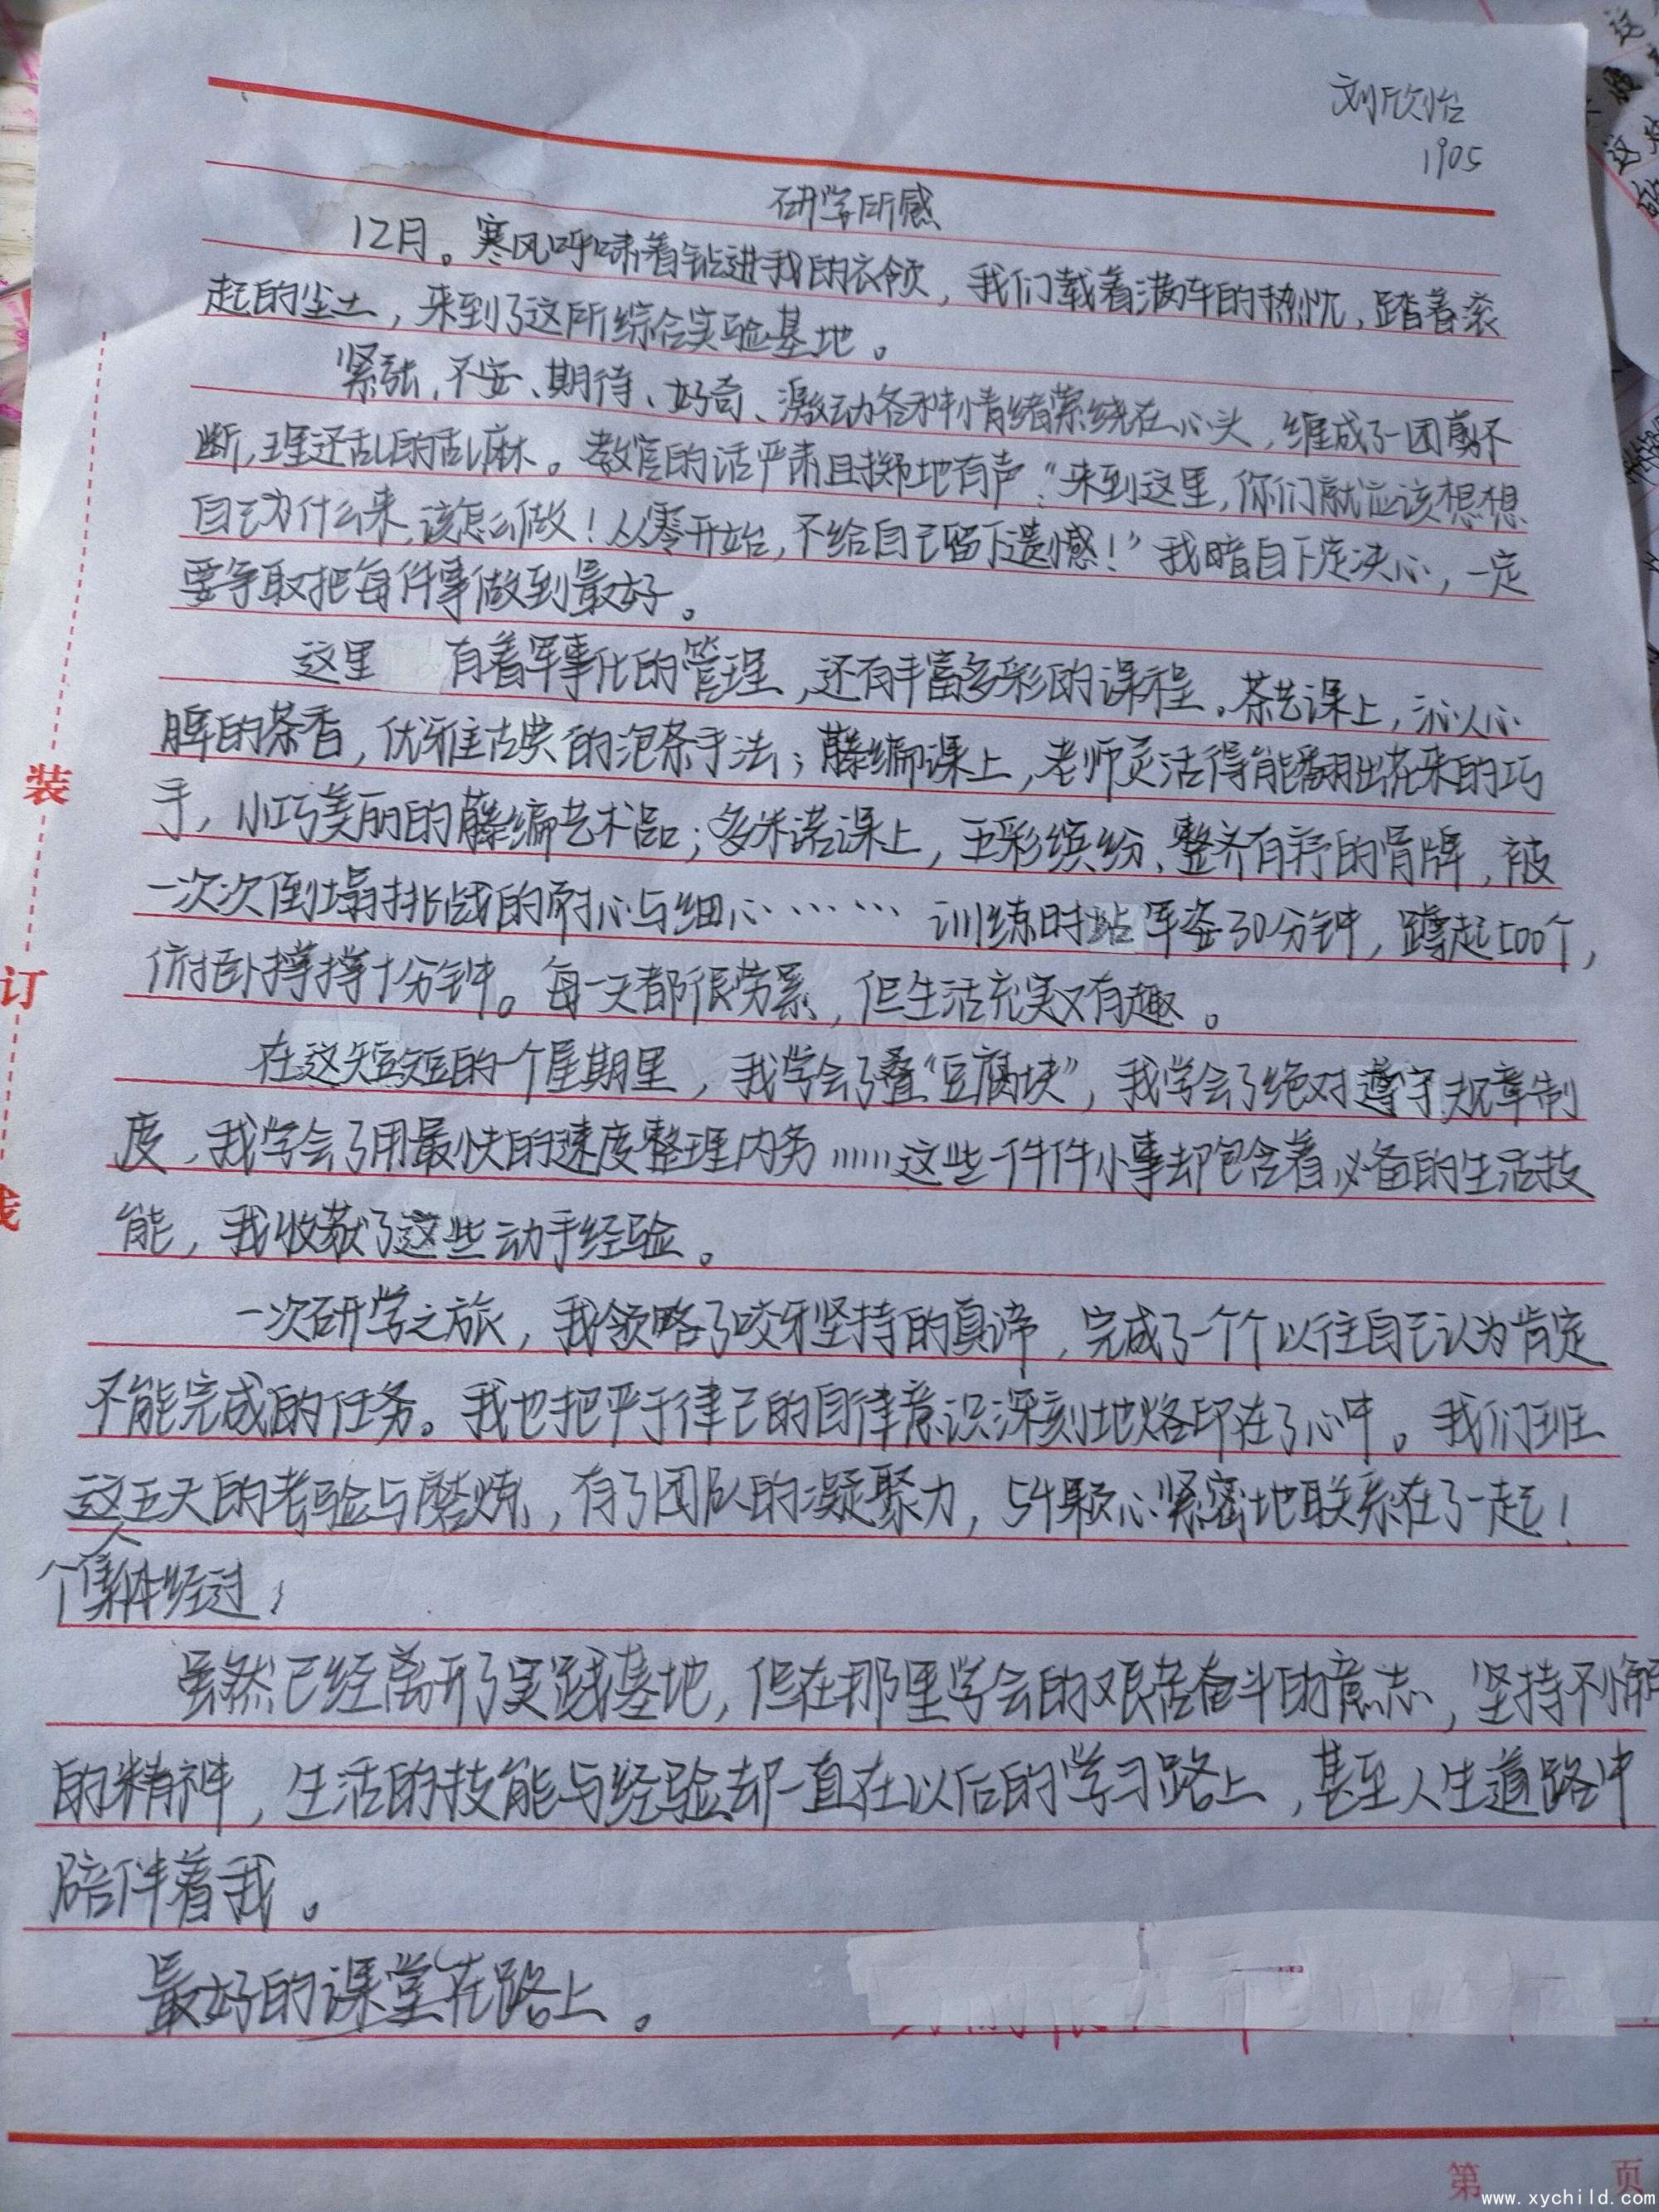 刘欣怡
1905
研学所感
12月。寒风呼啸着钻进我的衣领，我们载着满车的热忱，踏着滚
起的尘土，来到了这所综合实验基地。
紧张、不安、期待、好奇、激动各种情绪萦绕在心头，缠成了一团剪不
断，理还乱的乱麻。教官的话严肃且掷地有声："来到这里，你们就应该想想
自己为什么来，该怎么做！从零开始，不给自己留下遗憾！"我暗自下定决心，一定
要争取把每件事做到最好。
这里 有着军事化的管理，还有丰富多彩的课程。茶艺课上，沁人心
脾的茶香，优雅古典的泡茶手法；藤编课上，老师灵活得能翻出花来的巧
手，小巧美丽的藤编艺术品；多米诺课上，五彩缤纷、整齐有序的骨牌，被
一次次倒塌挑战的耐心与细心……训练时站军姿30分钟，蹲起500个，
俯卧撑撑十分钟。每一天都很劳累，但生活充实又有趣。
在这短短的一个星期里，我学会了叠"豆腐块"，我学会了绝对遵守规章制
度，我学会了用最快的速度整理内务……这些一件件小事却包含着必备的生活技
能，我收获了这些动手经验。
一次研学之旅，我领略了咬牙坚持的真谛，完成了一个个以往自己认为肯定
不能完成的任务。我也把严于律己的自律意识深刻地烙印在了心中。我们班
这五天的考验与磨炼，有了团队的凝聚力，54颗心紧密地联系在了一起！
个集体经过
虽然已经离开了实践基地，但在那里学会的艰苦奋斗的意志，坚持不懈
的精神，生活的技能与经验却一直在以后的学习路上，甚至人生道路中
陪伴着我。
最好的课堂在路上。
装
订
线
第 页
www.xychild.com